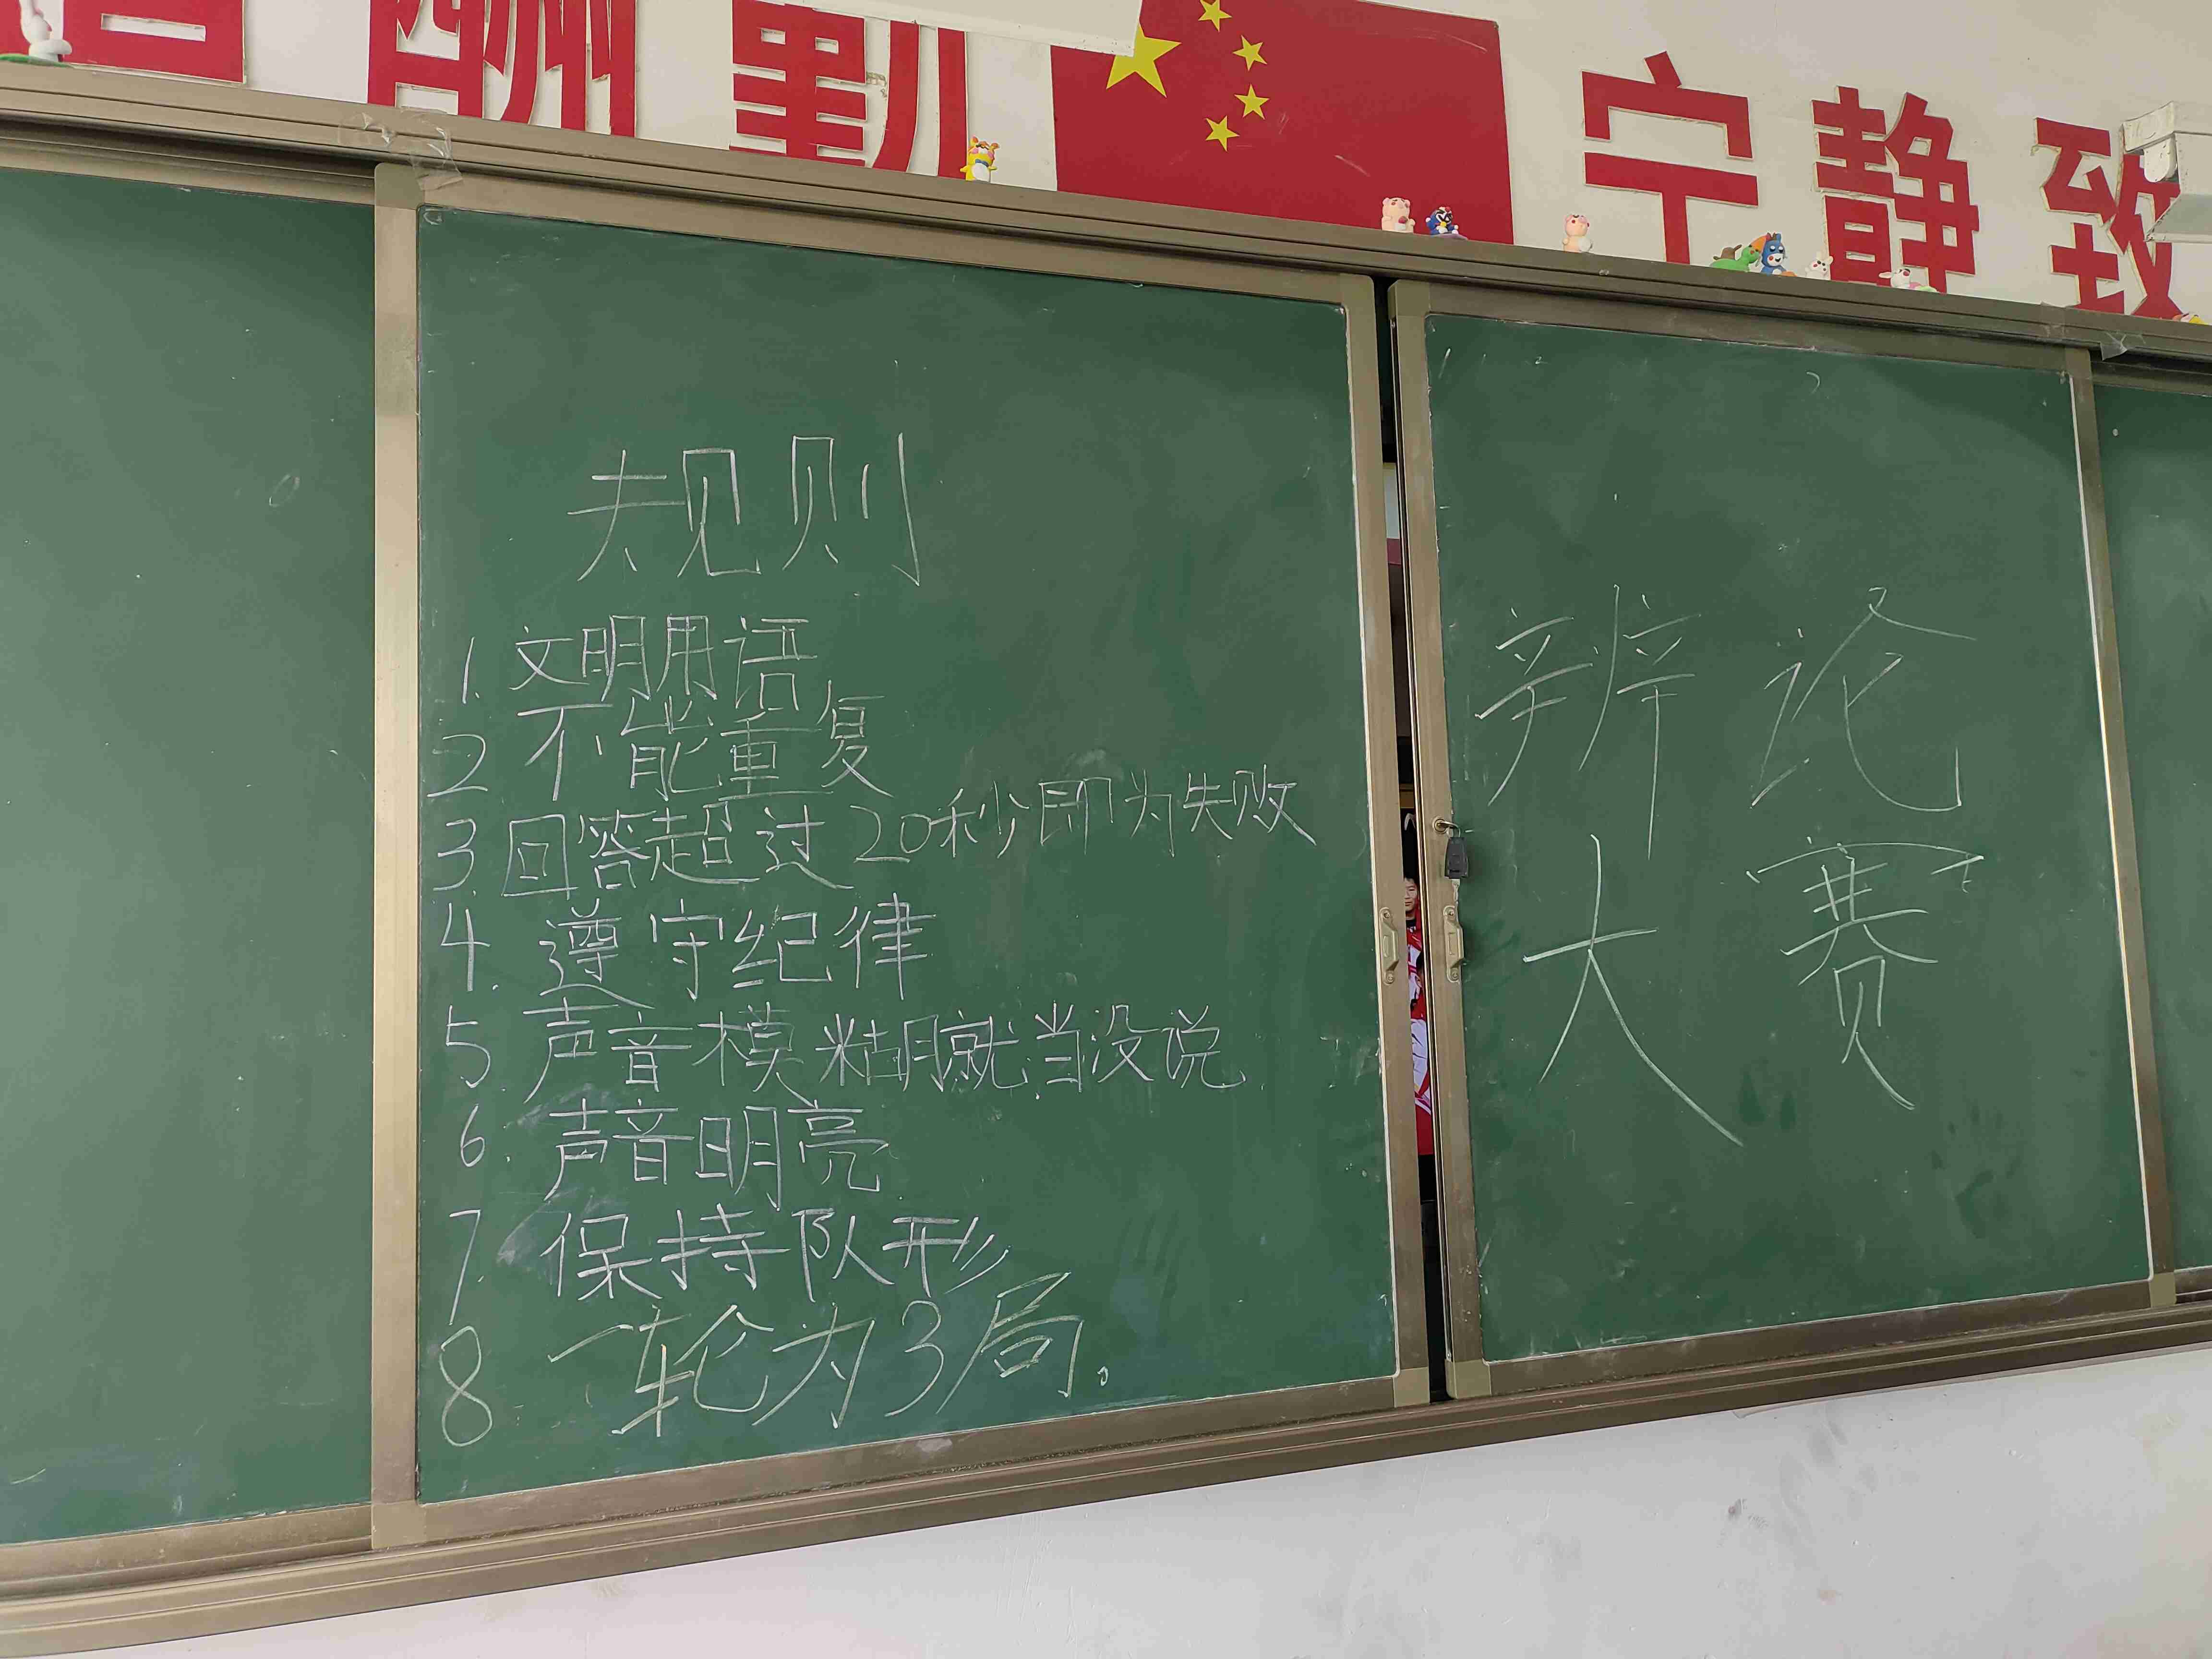 酬勤
宁静致
规则
1. 文明用语
2 不能重复
3. 回答超过20秒即为失败
4. 遵守纪律
5. 声音模糊就当没说
6. 声音明亮
7. 保持队形
8. 一轮为3局。
辨论
大赛